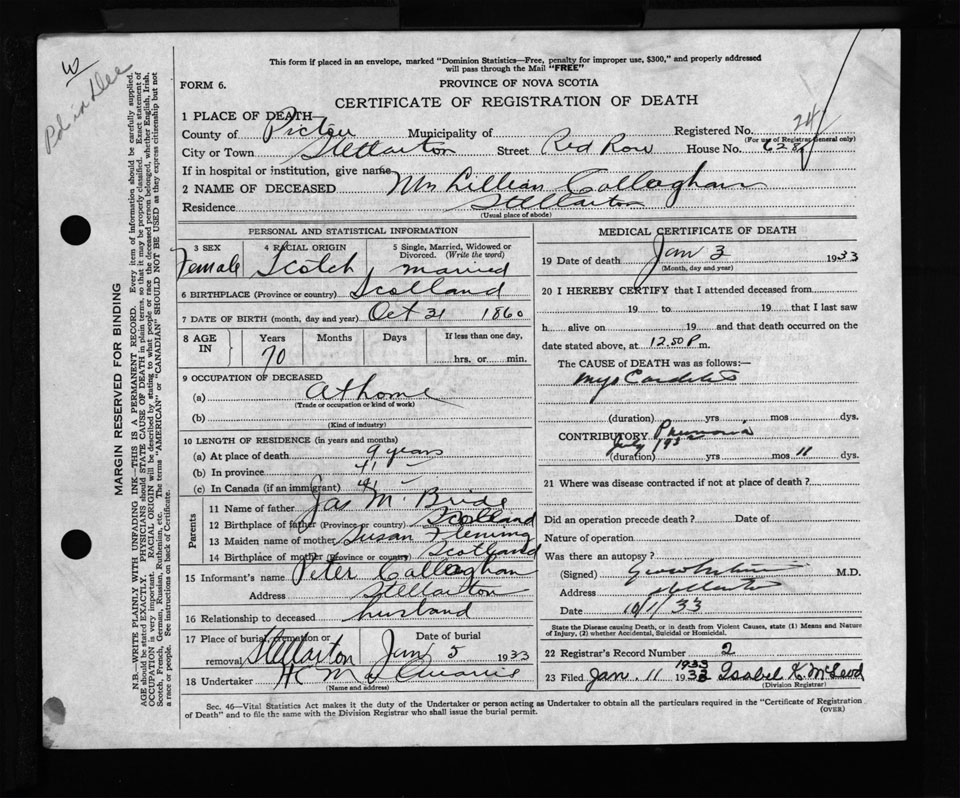 This form if placed in an envelope, marked "Dominion Statistics—Free, penalty for improper use, $300," and properly addressed
will pass through the Mail "FREE"
FORM 6.
PROVINCE OF NOVA SCOTIA
CERTIFICATE OF REGISTRATION OF DEATH
1 PLACE OF DEATH
County of Pictou Municipality of Registered No. 24
(For use of Registrar General only)
City or Town Stellarton Street Red Row House No. 628
If in hospital or institution, give name
2 NAME OF DECEASED Mrs Lillian Callaghan
Residence Stellarton
(Usual place of abode)
PERSONAL AND STATISTICAL INFORMATION
3 SEX Female
4 RACIAL ORIGIN Scotch
5 Single, Married, Widowed or Divorced. (Write the word) married
6 BIRTHPLACE (Province or country) Scotland
7 DATE OF BIRTH (month, day and year) Oct 21 1860
8 AGE IN Years Months Days If less than one day,
70 hrs. or min.
9 OCCUPATION OF DECEASED
(a) At home
(Trade or occupation or kind of work)
(b)
(Kind of industry)
10 LENGTH OF RESIDENCE (in years and months)
(a) At place of death 9 years
(b) In province 41
(c) In Canada (if an immigrant) 41
Parents
11 Name of father Jas McBride
12 Birthplace of father (Province or country) Scotland
13 Maiden name of mother Susan Fleming
14 Birthplace of mother (Province or country) Scotland
15 Informant's name Peter Callaghan
Address Stellarton
16 Relationship to deceased husband
17 Place of burial, cremation or removal Stellarton Date of burial Jan 5 1933
18 Undertaker
(Name and address)
MEDICAL CERTIFICATE OF DEATH
19 Date of death Jan 3 1933
(Month, day and year)
20 I HEREBY CERTIFY that I attended deceased from
19 to 19 that I last saw
h alive on 19 and that death occurred on the
date stated above, at 12.50 P m.
The CAUSE of DEATH was as follows:—
Myocarditis
(duration) yrs mos dys.
CONTRIBUTORY Pneumonia
July 1932
(duration) yrs mos 11 dys.
21 Where was disease contracted if not at place of death?
Did an operation precede death? Date of
Nature of operation
Was there an autopsy?
(Signed) M.D.
Address Stellarton
Date 10/1/33
State the Disease causing Death, or in death from Violent Causes, state (1) Means and Nature
of Injury, (2) whether Accidental, Suicidal or Homicidal.
22 Registrar's Record Number 2
23 Filed Jan. 11 1933 Isabel K. McLeod
(Division Registrar)
Sec. 46—Vital Statistics Act makes it the duty of the Undertaker or person acting as Undertaker to obtain all the particulars required in the "Certificate of Registration
of Death" and to file the same with the Division Registrar who shall issue the burial permit.
(OVER)
MARGIN RESERVED FOR BINDING
N.B.—WRITE PLAINLY WITH UNFADING INK—THIS IS A PERMANENT RECORD. Every item of Information should be carefully supplied.
AGE should be stated EXACTLY. PHYSICIANS should STATE CAUSE OF DEATH in plain terms, so that it may be properly classified. Exact statement of
OCCUPATION is very important. RACIAL ORIGIN will be described by stating to what people or race the deceased person belonged, whether English, Irish,
Scotch, French, German, Russian, Ruthenian, etc. The terms "AMERICAN" or "CANADIAN" SHOULD NOT BE USED as they express citizenship but not
a race or people. See instructions on back of Certificate.